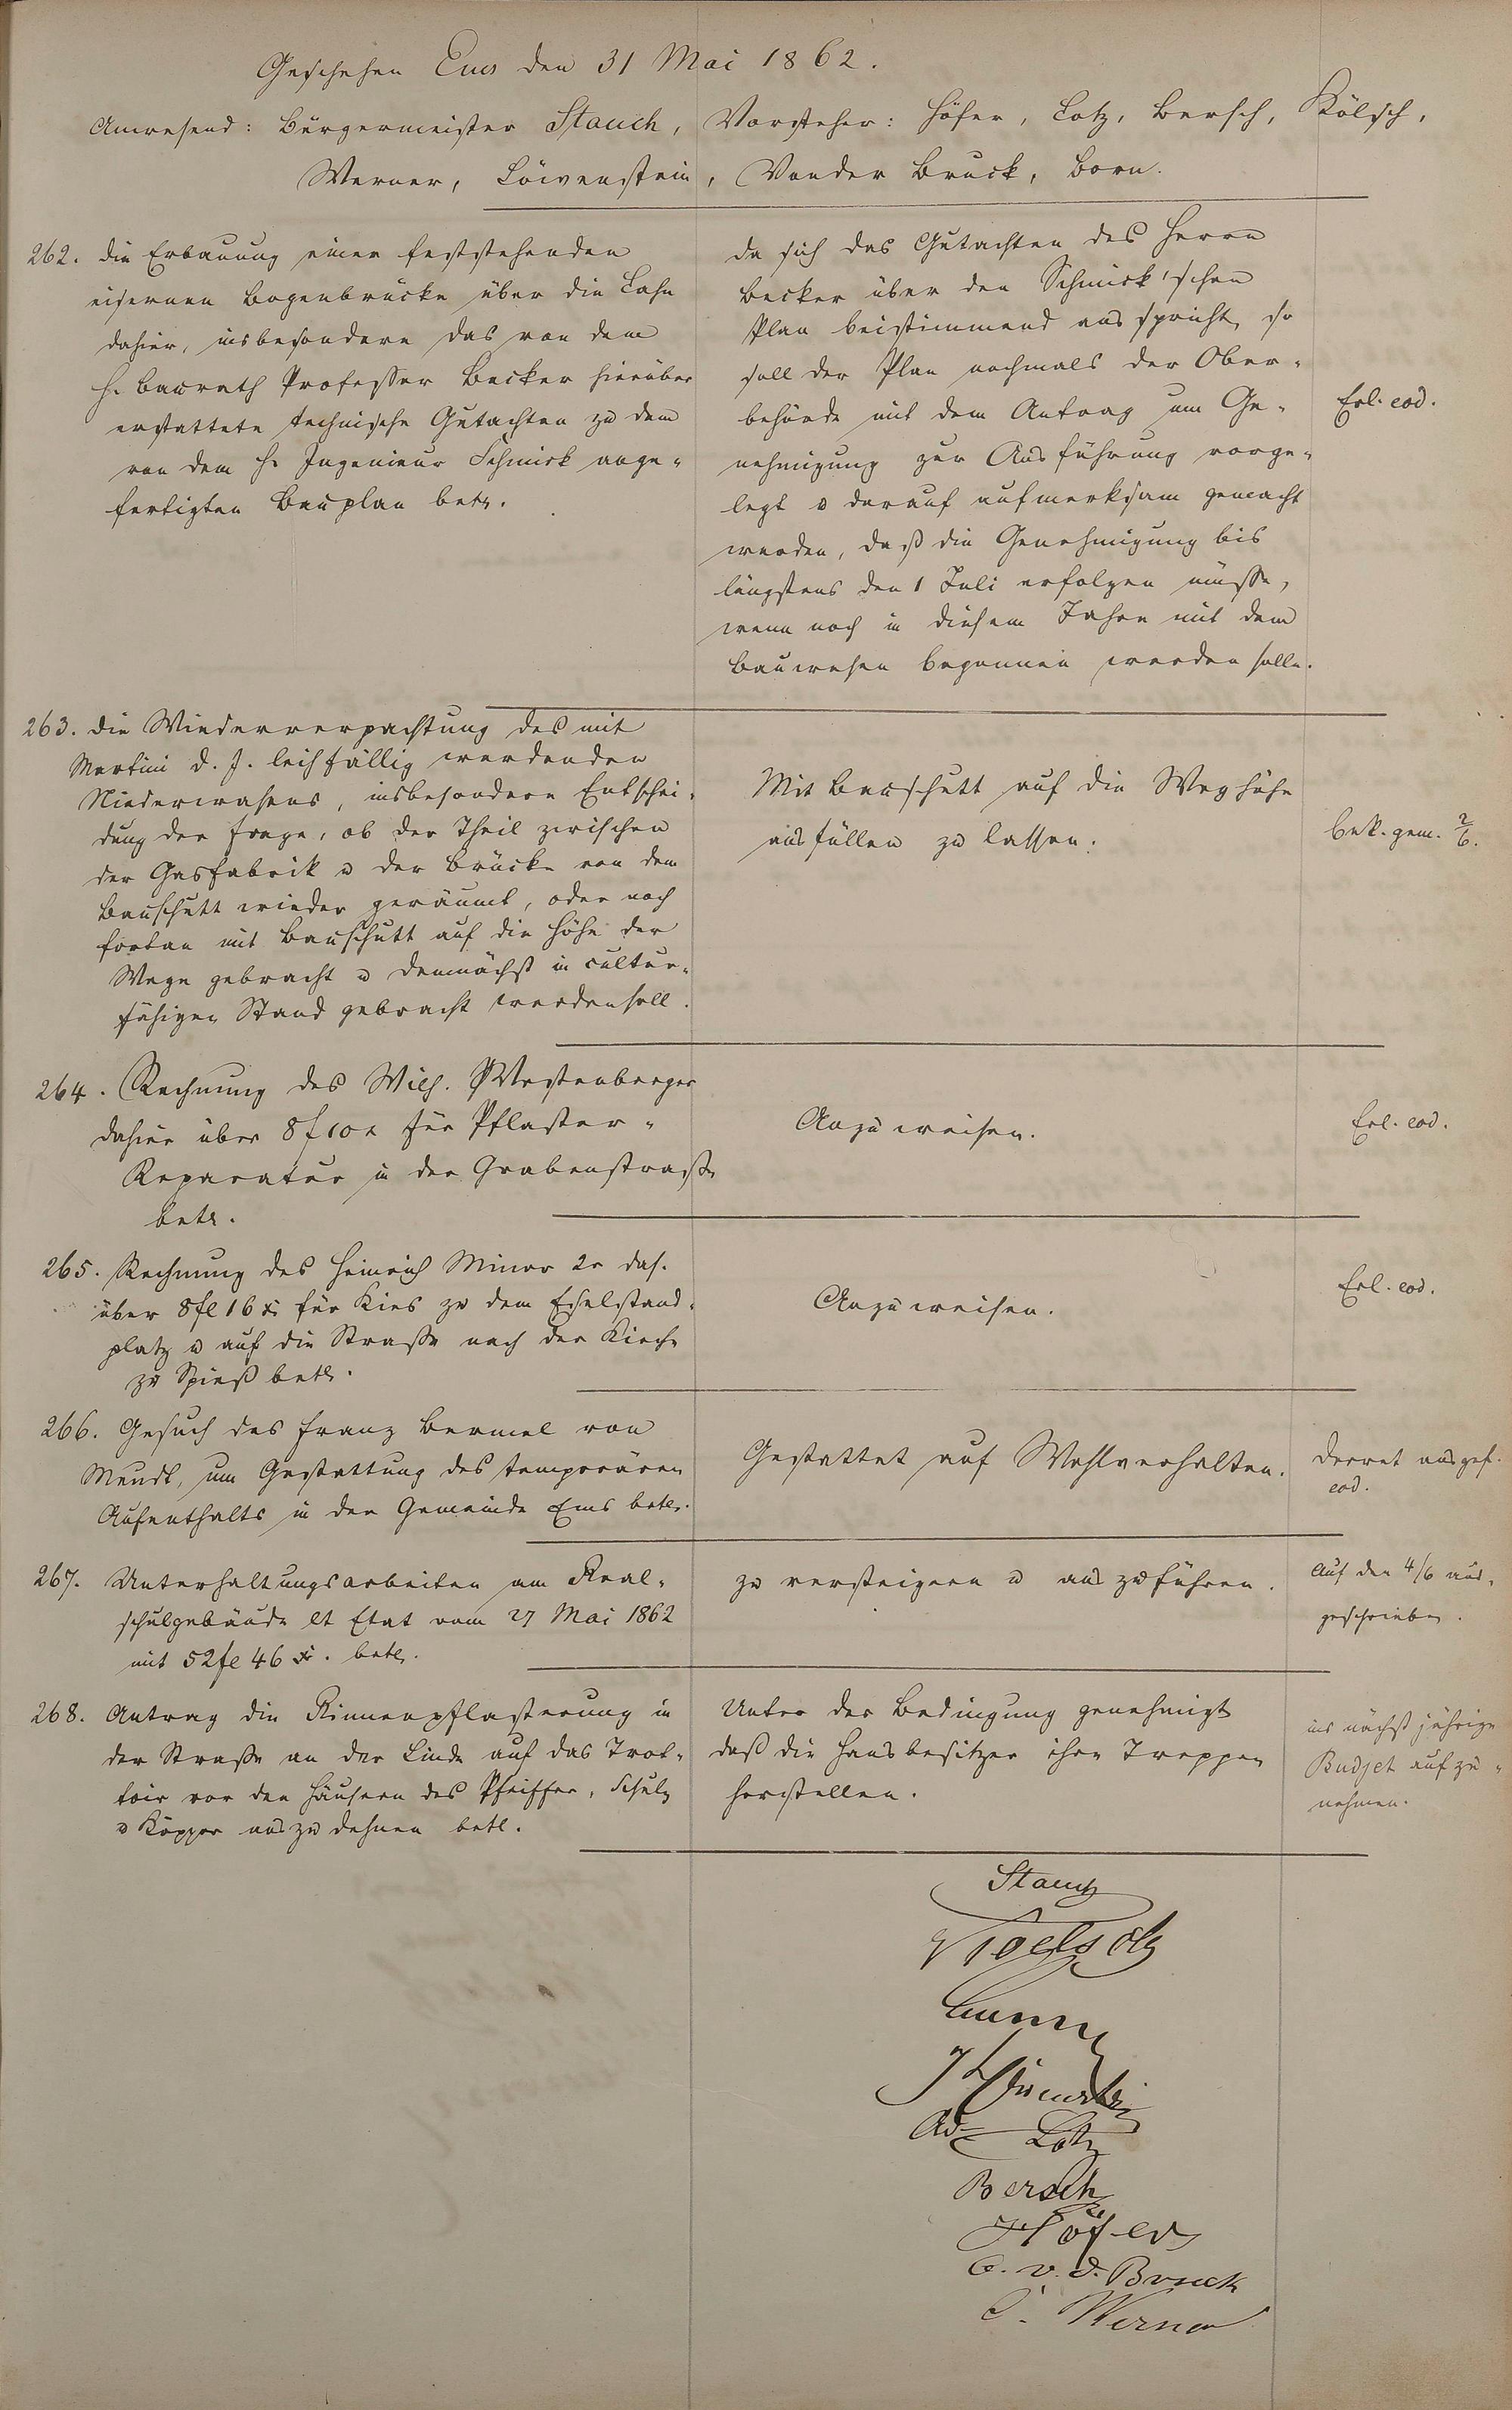 Geschehen Ems den 31 Mai 1862.
Anwesend: Bürgermeister Stauch, Vorsteher: Höfer, Lotz, Bersch, Kölsch,
Werner, Löwenstein, Vonder Bruck, Born.
262. die Erbauung einer feststehenden
eisernen Bogenbrücke über die Lahn
dahier, insbesondere das von dem
H. Baurath Professer Becker hierüber
erstattete technische Gutachten zu dem
von dem H. Ingenieur Schmick ange-
fertigten Bauplan betr.
da sich das Gutachten des Herrn
Becker über den Schmick'schen
Plan beistimmend ausspricht, so
soll der Plan nochmals der Ober-
behörde mit dem Antrag um Ge-
nehmigung zur Ausführung vorge-
legt u darauf aufmerksam gemacht
werden, daß die Genehmigung bis
längstens den 1 Juli erfolgen müsse,
wenn noch in diesem Jahre mit dem
Bauwesen begonnen werden solle.
Erl. eod.
263. die Wiederverpachtung des mit
Martini d. J. leihfällig werdenden
Niederwasens, insbesondere Entschei-
dung der Frage, ob der Theil zwischen
der Gasfabrik u der Brücke von dem
Bauschutt wieder geräumt, oder noch
fortan mit Bauschutt auf die Höhe der
Wege gebracht u demnächst in cultur-
fähigen Stand gebracht werden soll.
Mit Bauschutt auf die Weghöhe
ausfüllen zu lassen.
bek. gem. 2/6.
264. Rechnung des Wilh. Westenberger
dahier über 8 f 10 x für Pflaster-
Reparatur in der Grabenstraße
betr.
Anzuweisen.
Erl. eod.
265. Rechnung des Heinrich Minor 2r das.
über 8 fl 16 xr für Kies zu dem Eselstand-
platz u auf die Straße nach der Kirche
zu Spieß betr.
Anzuweisen.
Erl. eod.
266. Gesuch des Franz Bermel von
Meudt, um Gestattung des temporären
Aufenthalts in der Gemeinde Ems betr.
Gestattet auf Wohlverhalten.
Decret ausgef.
eod.
267. Unterhaltungsarbeiten am Real-
schulgebäude lt Etat vom 27 Mai 1862
mit 52 fl 46 xr. betr.
zu versteigern u auszuführen.
Auf den 4/6 aus-
geschrieben.
268. Antrag die Rinnenpflasterung in
der Straße an der Linde auf das Trot-
toir vor den Häusern des Pfeiffer, Schulz
u Köpper auszudehnen betr.
Unter der Bedingung genehmigt
daß die Hausbesitzer ihre Treppen
herstellen.
ins nächstjährige
Budjet aufzu-
nehmen.
Stauch
Koelsch
J Löwenstein
Ad. Lotz
Bersch
Höfer
C. v. d. Bruck
C. Werner